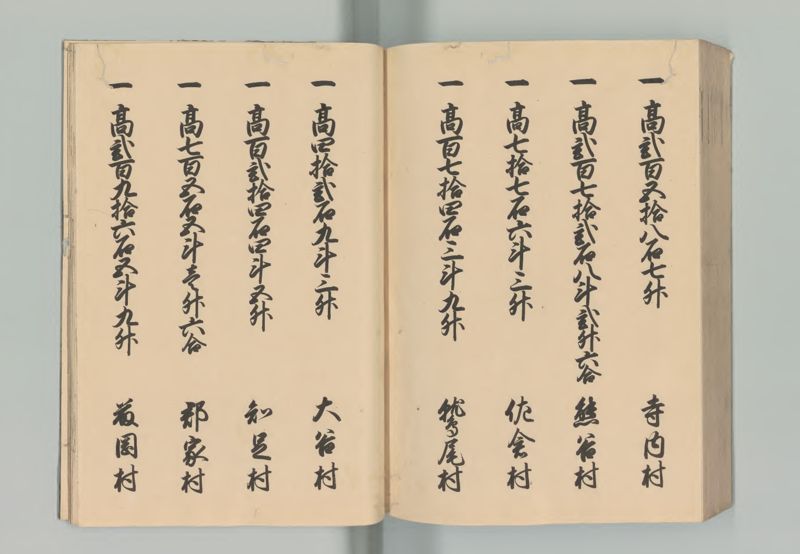 一 高弐百五拾八石七升 寺内村
一 高弐百七拾弐石八斗弐升六合 熊谷村
一 高七拾七石六斗三升 佐倉村
一 高百七拾四石三斗九升 鷲尾村
一 高四拾弐石九斗三升 大谷村
一 高百弐拾四石四斗五升 知足村
一 高七百五石五斗壱升六合 郡家村
一 高弐百九拾六石五斗九升 岡村